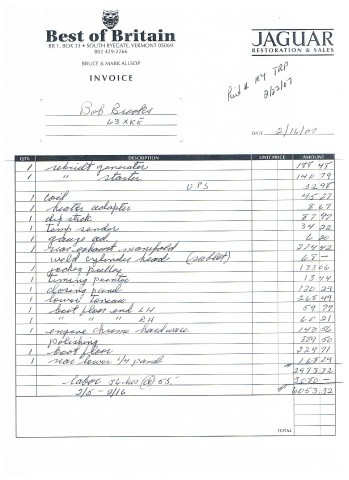 Best of Britain
RR 1, BOX 33 • SOUTH RYEGATE, VERMONT 05069
802 429-2266
BRUCE & MARK ALLSOP
INVOICE
JAGUAR
RESTORATION & SALES
Paid
2/22/07
Bob Brooks
63 XKE
DATE 2/16/07
QTY. DESCRIPTION UNIT PRICE AMOUNT
1 rebuilt generator 188 45
1 " starter 140 79
UPS 32 98
1 coil 45 27
1 heater adapter 8 67
1 dip stick 87 97
1 temp sender 34 22
1 gauge ad. 6 20
1 rear exhaust manifold 274 62
weld cylinder head (sublet) 68 —
1 jockey pulley 133 06
1 timing pointer 13 44
1 closing panel 120 29
1 lower tonneau 268 49
1 boot floor end LH 59 79
1 " " " RH 60 21
1 engine chrome hardware 143 56
polishing 889 50
1 boot floor 229 71
1 rear lower 1/4 panel 168 24
2973.32
labor 56 hrs @ 55. 3080 —
2/5 - 2/16 6053.32
TOTAL